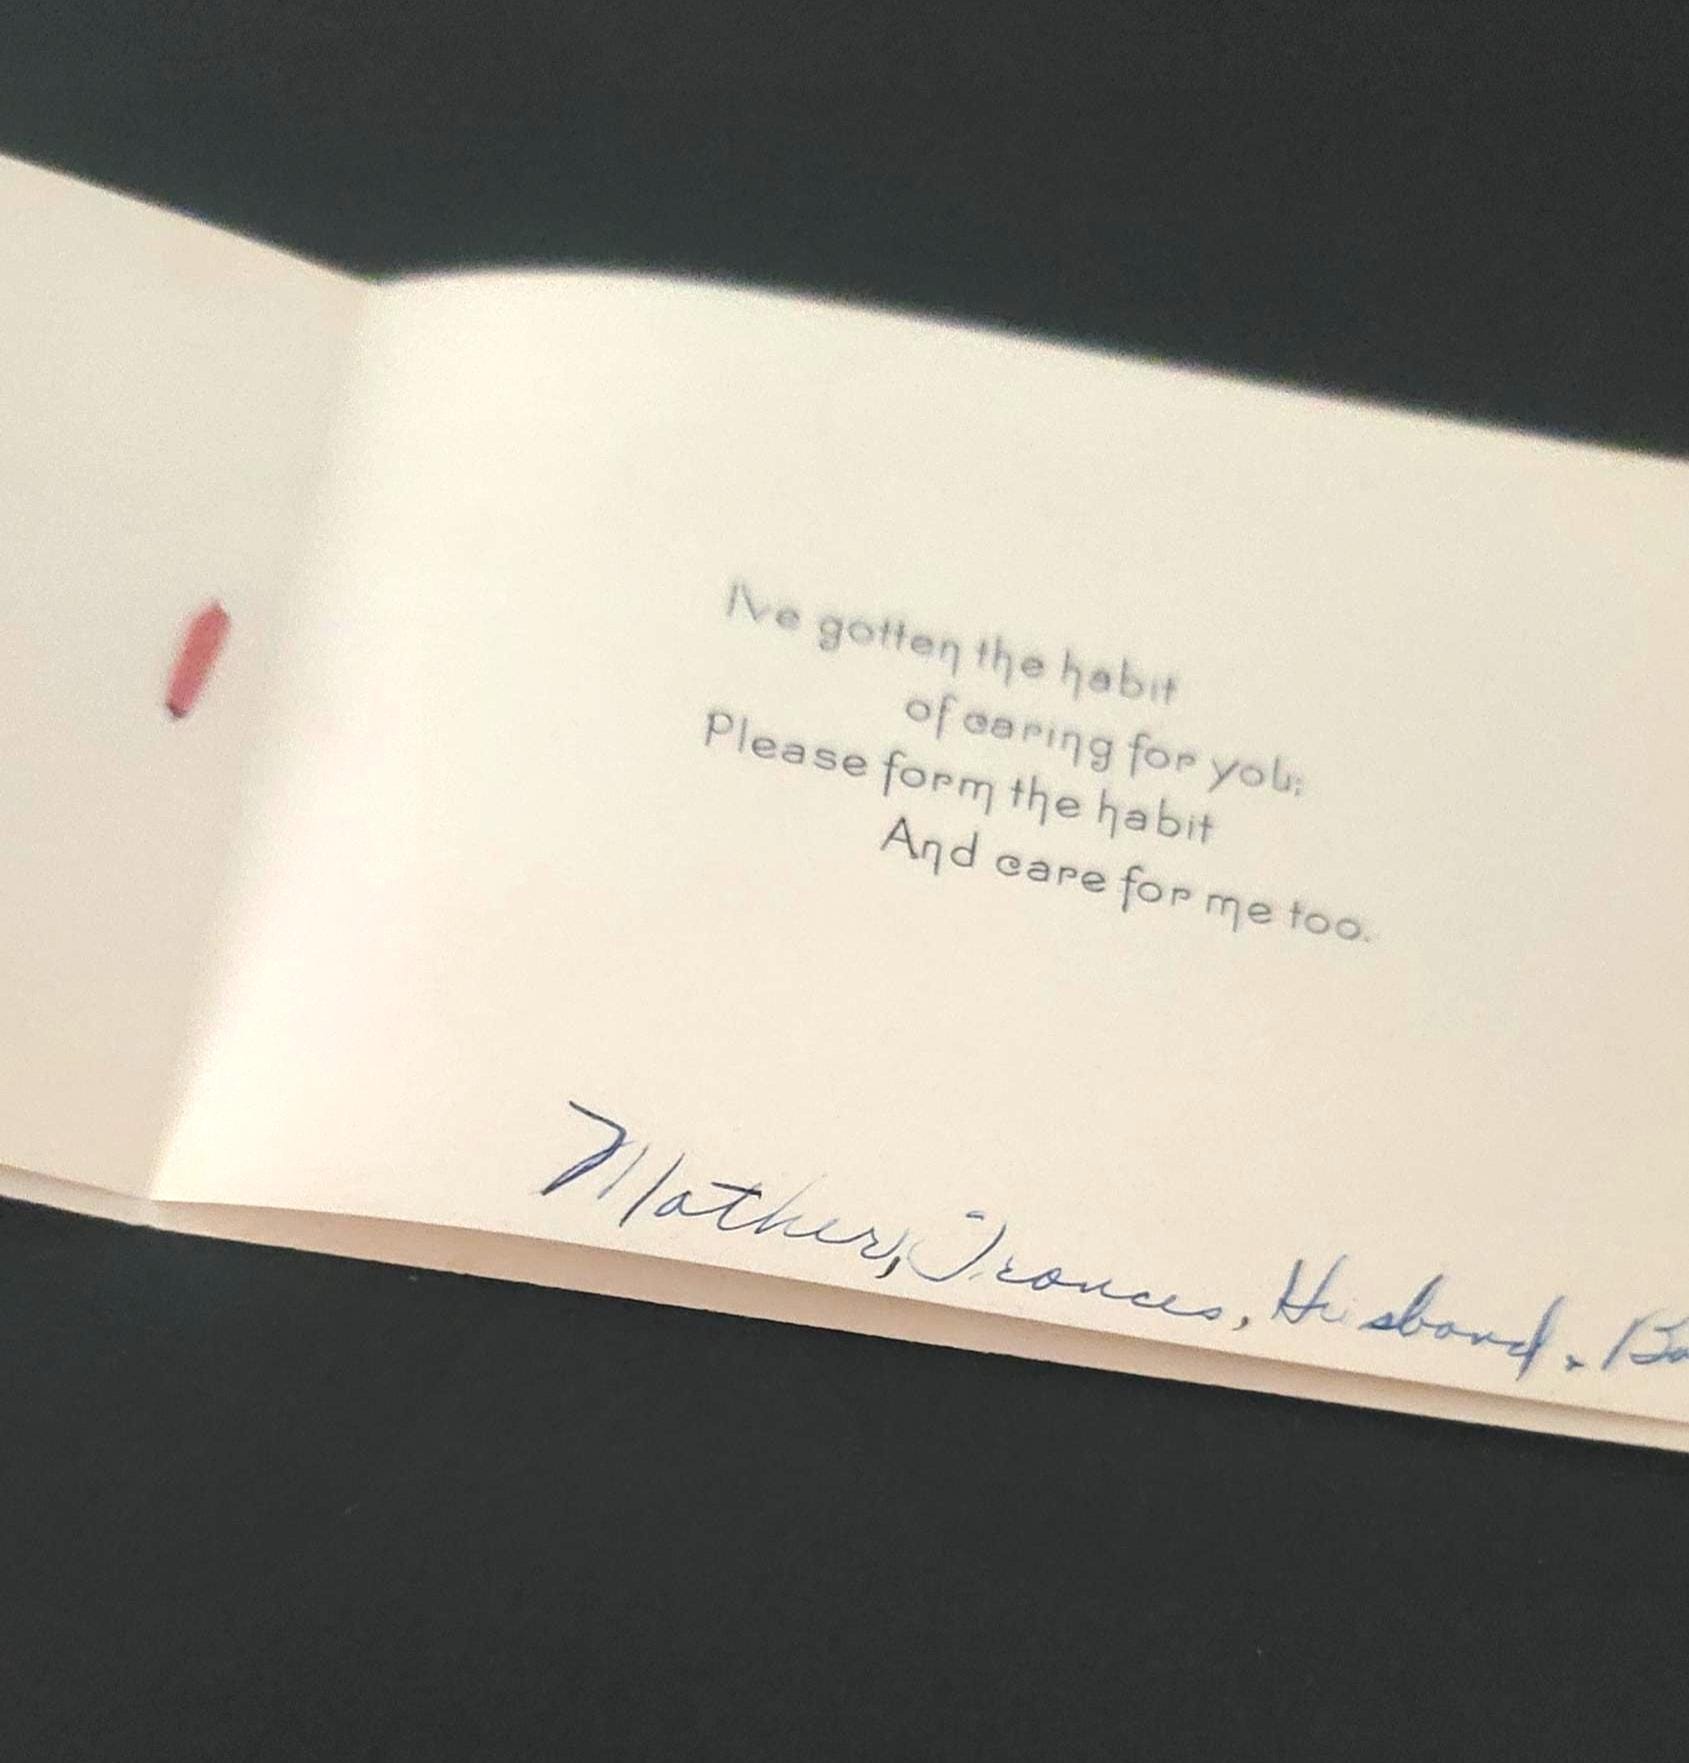 I've gotten the habit
of caring for you;
Please form the habit
And care for me too.
Mother, Frances, Husband. Ba